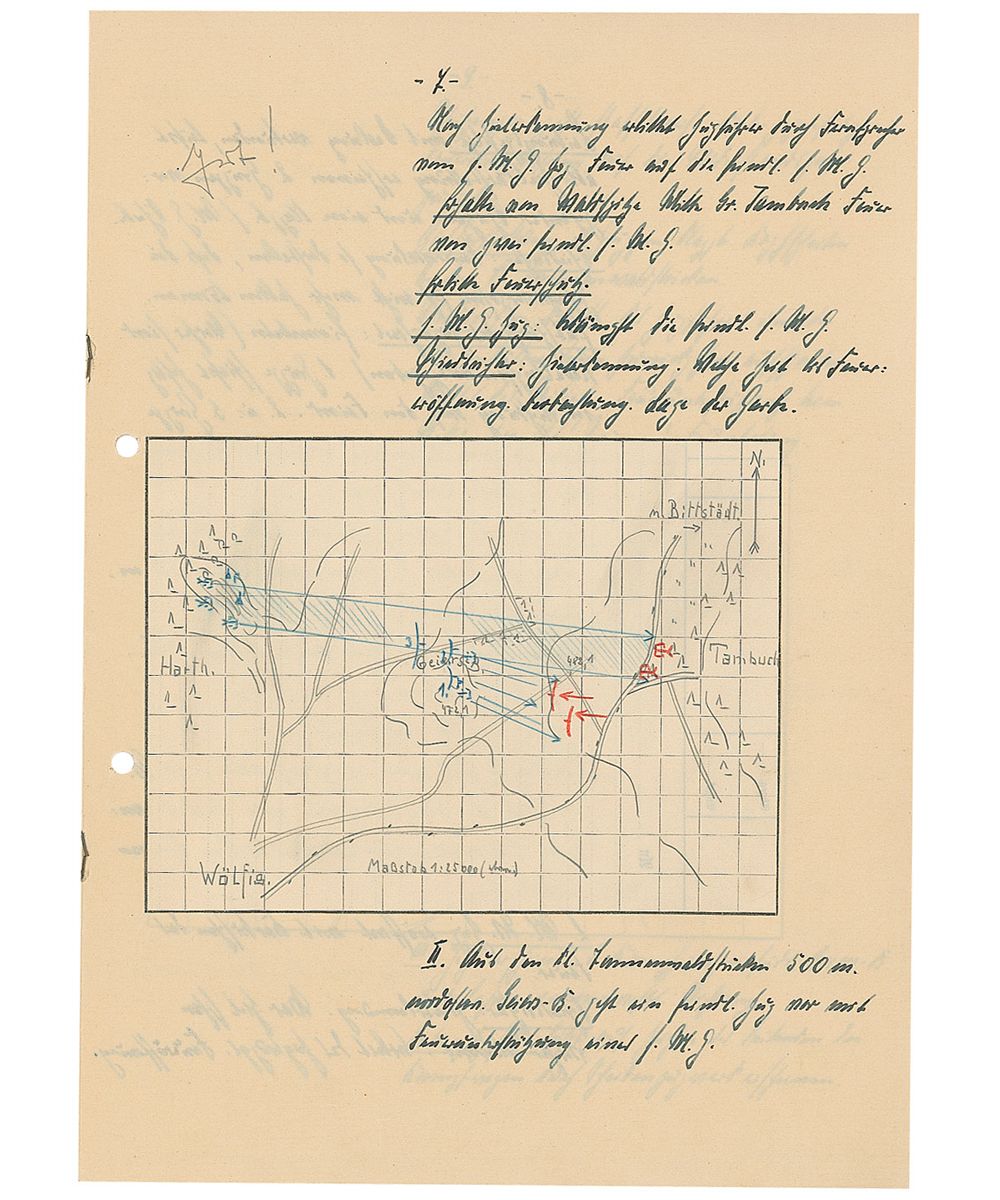 - 7. -
Nach Zielerkennung erbittet Zugführer durch Fernsprecher
vom s. M. G. Zug Feuer auf die feindl. s. M. G.
Erhalte von Waldspitze Mitte Gr. Tambach Feuer
von zwei feindl. s. M. G.
Erbitte Feuerschutz.
s. M. G. Zug: bekämpft die feindl. s. M. G.
Schiedsrichter: Zielerkennung. Welche Zeit bis Feuer:
eröffnung. Beobachtung. Lage der Garbe.
Gut!
N.
n. Bittstädt.
Harth.
Geiersb.
472,1
Tambuch
Wölfis.
Maßstab 1:25000
II. Aus den kl. Tannenwaldstücken 500 m.
nordöstl. Geiers-B. geht ein feindl. Zug vor mit
Feuerunterstützung eines s. M. G.